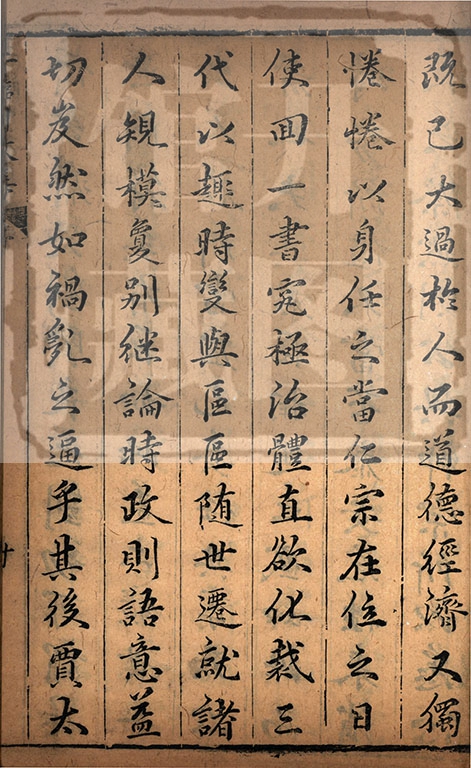 既已大過於人而道德經濟又獨
惓惓以身任之當仁宗在位之日
使囬一書究極治體直欲化裁三
代以趣時變與區區随世遷就諸
人規模敻别继論時政則語意益
切岌然如禍乱之逼乎其後賈太